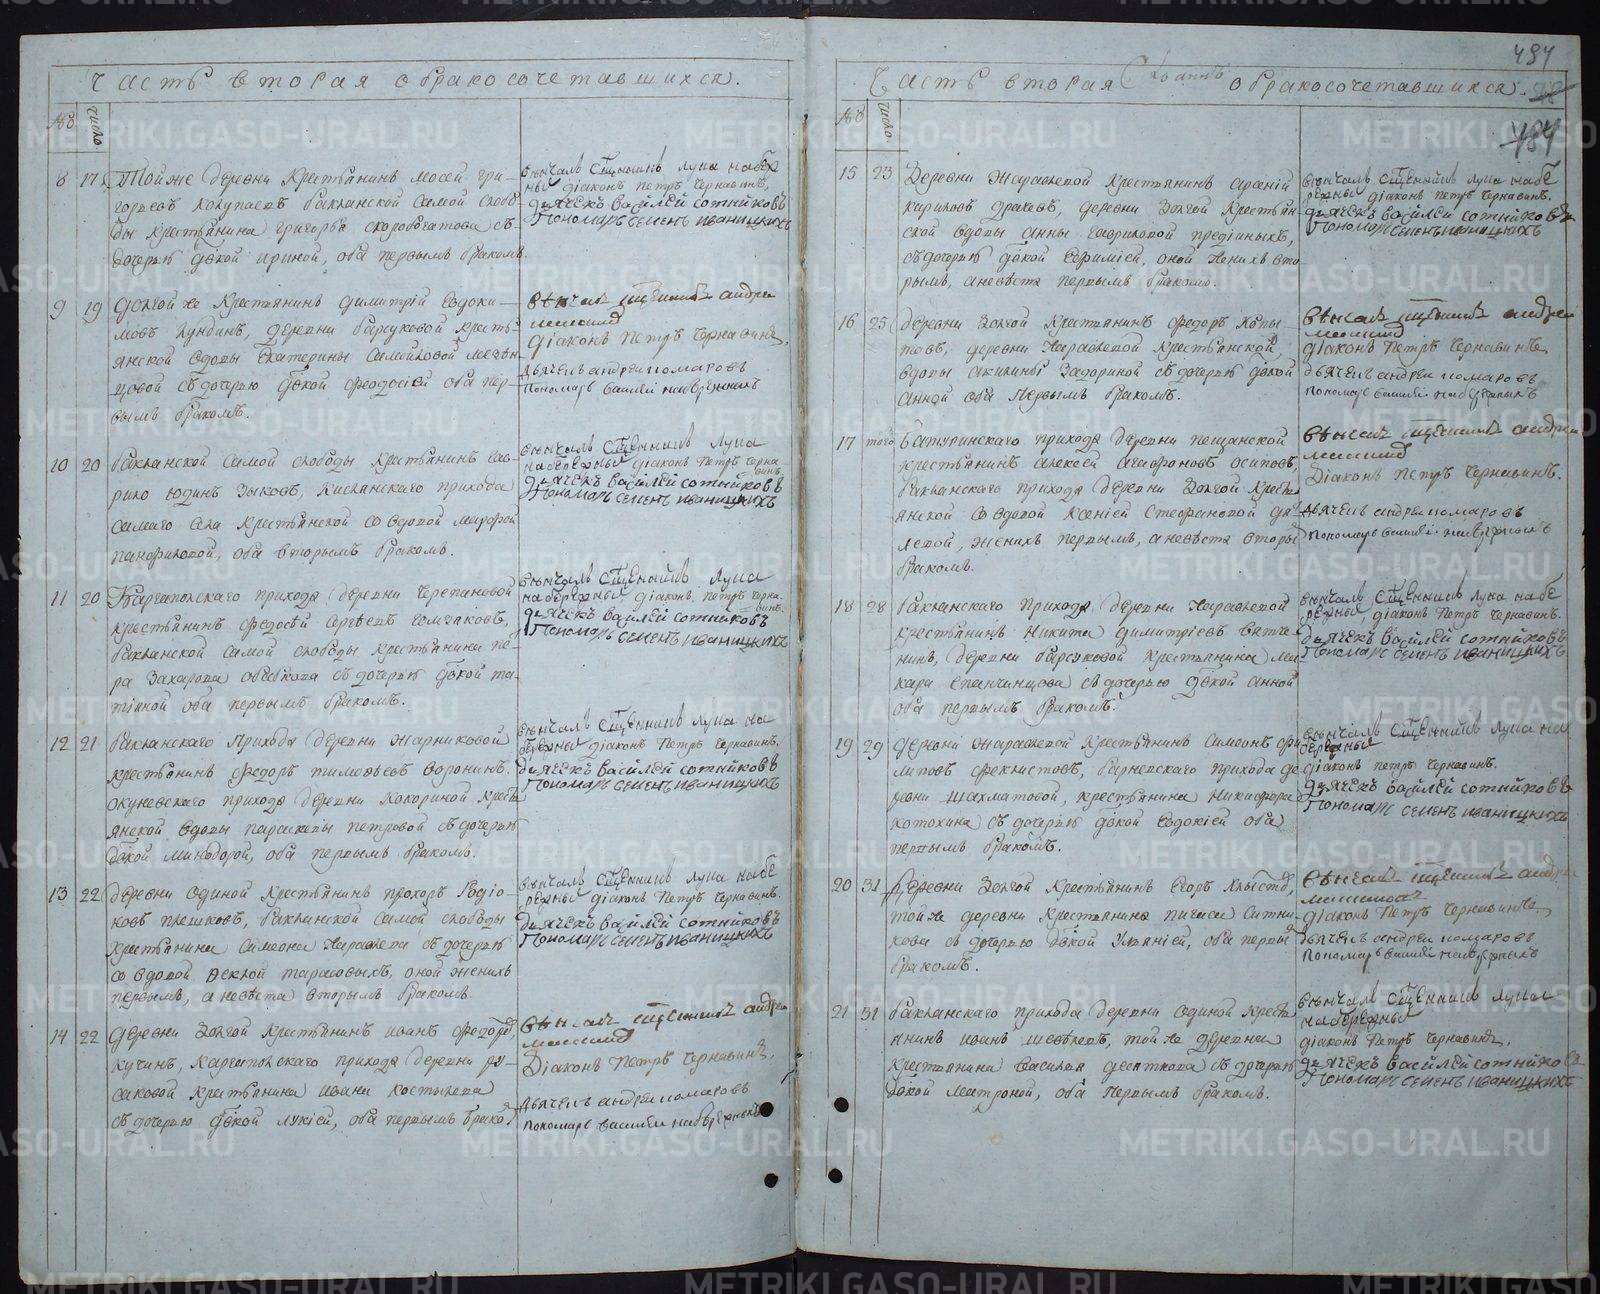 Часть вторая о бракосочетавшихся.
№
Число
8 17 Тойже деревни крестьянинъ Мосей Гри-
горьевъ баклянской самой слобо-
ды крестьянина Григорья Скоробогатова съ
дочерью дѣвкой Ириной, оба первымъ бракомъ.
Вѣнчалъ Священникъ Лука Набе
режный діаконъ Петръ Чернавинъ,
дьячекъ Василей Сотниковъ
Пономарь Семенъ Иваницкихъ
9 19 Долгой же крестьянинъ Димитрій Евдоки-
мовъ деревни Барсуковой кресть-
янской вдовы Екатерины Самойловой
съ дочерью дѣвкой Феодосіей оба пер-
вымъ бракомъ.
Вѣнчалъ священникъ Андрей
Діаконъ Петръ Чернавинъ,
Дьячекъ Андрей Комаровъ
Пономарь Василей Набережныхъ
10 20 Баклянской самой слободы крестьянинъ Гав-
рило Юдинъ Зыковъ, Кислянскаго прихода
самаго села крестьянской со вдовой Марфой
Панфиловой, оба вторымъ бракомъ.
Вѣнчалъ Священникъ Лука
Набережный діаконъ Петръ Черна
винъ.
Дьячекъ Василей Сотниковъ
Пономарь Семенъ Иваницкихъ
11 20 Каргапольскаго прихода деревни Черепановой
крестьянинъ Федосѣй Сергѣевъ
Баклянской самой слободы крестьянина Пе-
ра Захарова съ дочерью дѣвкой Та-
тіяной оба первымъ бракомъ.
Вѣнчалъ Священникъ Лука
Набережный діаконъ Петръ Черна-
винъ.
дьячекъ Василей Сотниковъ
Пономарь Семенъ Иваницкихъ
12 21 Баклянскаго прихода деревни Жарниковой
крестьянинъ Федоръ Пименьевъ Воронинъ.
Окуневскаго прихода деревни Кокориной кресть
янской вдовы Параскевы Петровой съ дочерью
дѣвкой Минодорой, оба первымъ бракомъ.
Вѣнчалъ Священникъ Лука На
бережный діаконъ Петръ Чернавинъ.
дьячекъ Василей Сотниковъ
Пономарь Семенъ Иваницкихъ
13 22 Деревни Одиной крестьянинъ Прохоръ Родіо-
новъ Плешковъ, Баклянской самой слободы
крестьянина Симеона съ дочерью
со вдовой Феклой Тарасовыхъ, оной женихъ
первымъ, а невѣста вторымъ бракомъ.
Вѣнчалъ Священникъ Лука Набе
режный діаконъ Петръ Чернавинъ.
дьячекъ Василей Сотниковъ
Пономарь Семенъ Иваницкихъ
14 22 Деревни Долгой крестьянинъ Иванъ Федоровъ
Кучинъ, Каргапольскаго прихода деревни Ру-
саковой крестьянина Ивана Костылева
съ дочерью дѣвкой Лукіей, оба первымъ бракомъ
Вѣнчалъ священникъ Андрей
Діаконъ Петръ Чернавинъ,
Дьячекъ Андрей Комаровъ
Пономарь Василей Набережныхъ
484
Часть вторая о бракосочетавшихся.
484
№
Число
15 23 Деревни Журавлевой крестьянинъ
Кириловъ деревни Долгой крестьян
ской вдовы Анны Гавриловой
съ дочерью дѣвкой Евфиміей, оной женихъ вто-
рымъ, а невѣста первымъ бракомъ.
Вѣнчалъ Священникъ Лука Набе
режный діаконъ Петръ Чернавинъ.
Дьячекъ Василей Сотниковъ
Пономарь Семенъ Иваницкихъ
16 25 Деревни Долгой крестьянинъ Федоръ Копы-
товъ, деревни Журавлевой крестьянской,
вдовы Акилины Задориной съ дочерью дѣвкой
Анной оба первымъ бракомъ.
Вѣнчалъ священникъ Андрей
діаконъ Петръ Чернавинъ.
Дьячекъ Андрей Комаровъ
Пономарь Василей Набережныхъ
17 того Батуринскаго прихода деревни Пещанской
крестьянинъ Алексей Агафоновъ Осиповъ,
Баклянскаго прихода деревни Долгой кресть
янской со вдовой Ксеніей Стефановой
левой, женихъ первымъ, а невѣста вторы
бракомъ.
Вѣнчалъ священникъ Андрей
Діаконъ Петръ Чернавинъ.
Дьячекъ Андрей Комаровъ
Пономарь Василей Набережныхъ
18 28 Баклянскаго прихода деревни Журавлевой
крестьянинъ Никита Димитріевъ Вятче-
нинъ, деревни Барсуковой крестьянина Ма-
кара Епанчинцова съ дочерью дѣвкой Анной
оба первымъ бракомъ.
Вѣнчалъ Священникъ Лука Набе
режный, діаконъ Петръ Чернавинъ.
дьячекъ Василей Сотниковъ
Пономарь Семенъ Иваницкихъ
19 29 Деревни Журавлевой крестьянинъ Симеонъ Фи
липовъ Феклистовъ, Барневскаго прихода де
ревни Шахматовой, крестьянина Никифора
Котохина съ дочерью дѣвкой Евдокіей оба
первымъ бракомъ.
Вѣнчалъ Священникъ Лука На
бережный
діаконъ Петръ Чернавинъ.
дьячекъ Василей Сотниковъ
Пономарь Семенъ Иваницкихъ
20 31 Деревни Долгой крестьянинъ Егоръ
тойже деревни крестьянина Ситни-
кова съ дочерью дѣвкой Ульяніей, оба первы
бракомъ.
Вѣнчалъ священникъ Андрей
діаконъ Петръ Чернавинъ,
Дьячекъ Андрей Комаровъ
Пономарь Василей Набережныхъ
21 31 Баклянскаго прихода деревни Одиной кресть
янинъ Иванъ тойже деревни
крестьянина Василья съ дочерью
дѣвкой Матроной, оба первымъ бракомъ.
Вѣнчалъ Священникъ Лука
Набережный
діаконъ Петръ Чернавинъ,
дьячекъ Василей Сотниковъ
Пономарь Семенъ Иваницкихъ
METRIKI.GASO-URAL.RU